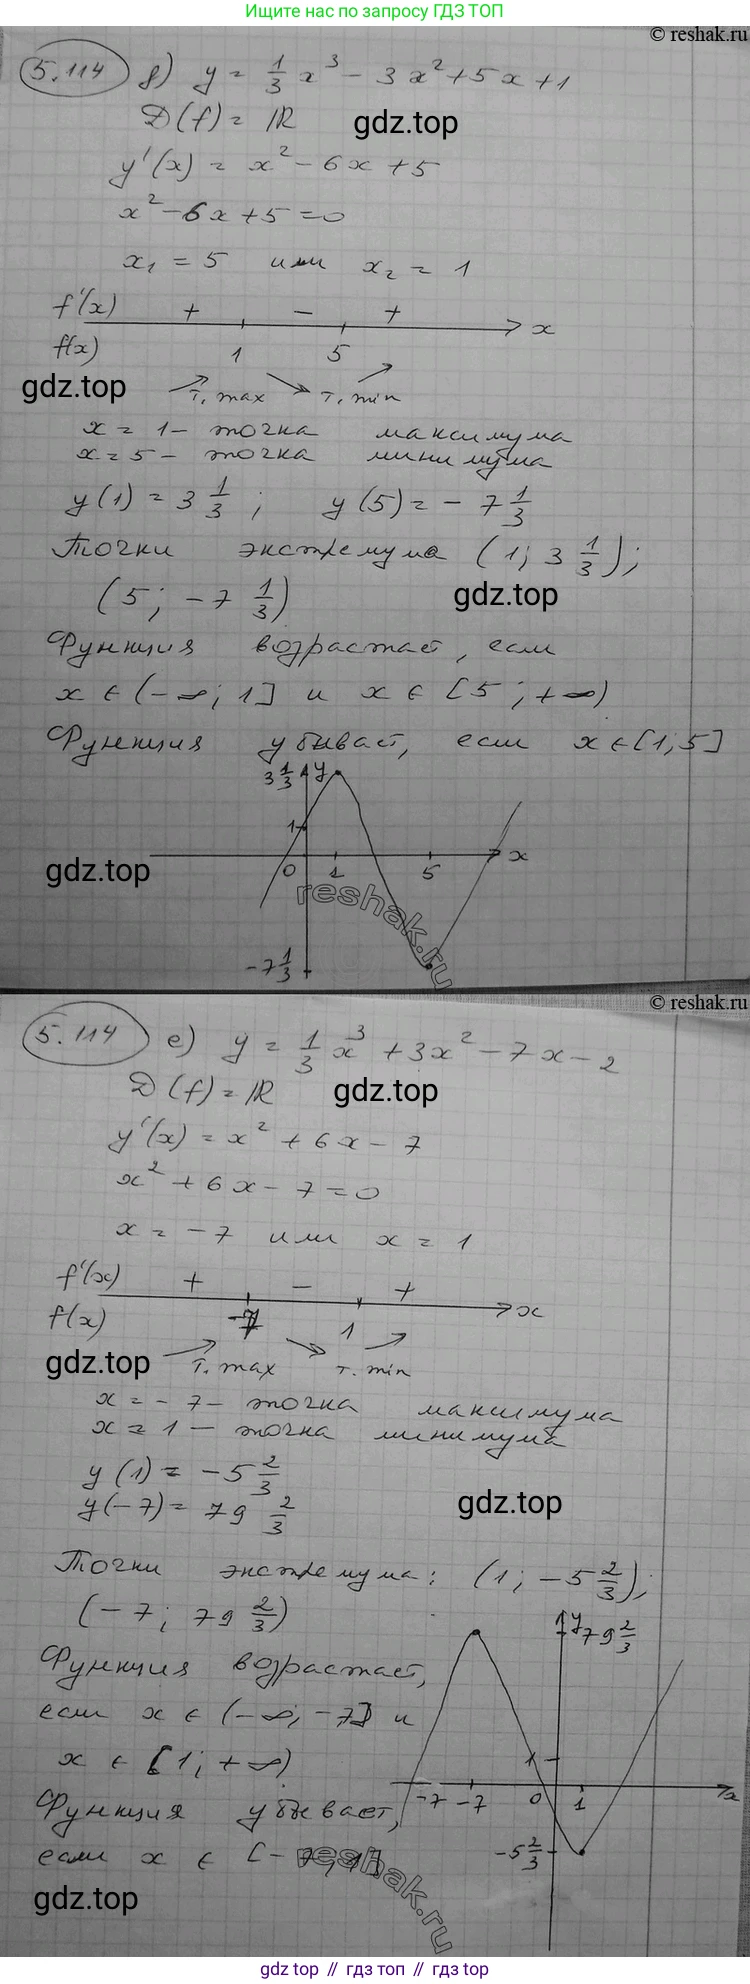 Ищите нас по запросу ГДЗ ТОП
© reshak.ru
5.114 д) y = 1/3 x³ - 3x² + 5x + 1
D(f) = R
gdz.top
y'(x) = x² - 6x + 5
x² - 6x + 5 = 0
x₁ = 5 или x₂ = 1
f'(x) + - + x
f(x) 1 5
gdz.top
т. max т. min
x = 1 - точка максимума
x = 5 - точка минимума
y(1) = 3 1/3 ; y(5) = - 7 1/3
Точки экстремума (1; 3 1/3);
(5; -7 1/3)
gdz.top
Функция возрастает, если
x ∈ (-∞; 1] и x ∈ [5; +∞)
Функция убывает, если x ∈ [1; 5]
3 1/3 y
1
gdz.top
0 1 5 x
reshak.ru
-7 1/3
© reshak.ru
5.114 е) y = 1/3 x³ + 3x² - 7x - 2
D(f) = R
gdz.top
y'(x) = x² + 6x - 7
x² + 6x - 7 = 0
x = -7 или x = 1
f'(x) + - +
f(x) -7 1 x
gdz.top
т. max т. min
x = -7 - точка максимума
x = 1 - точка минимума
y(1) = -5 2/3
y(-7) = 79 2/3
gdz.top
Точки экстремума: (1; -5 2/3);
(-7; 79 2/3)
y 79 2/3
Функция возрастает,
если x ∈ (-∞; -7] и
x ∈ [1; +∞)
1
-7 -7 0 1 x
Функция убывает,
если x ∈ [-7; 1]
-5 2/3
reshak.ru
gdz.top
gdz top // гдз топ // gdz top